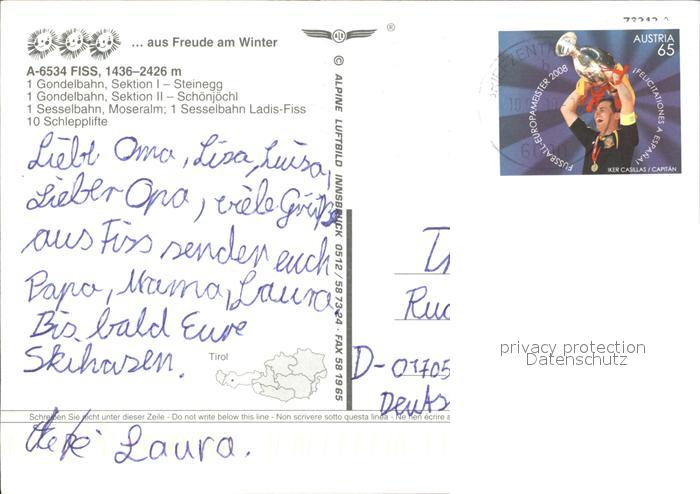 ... aus Freude am Winter
A-6534 FISS, 1436–2426 m
1 Gondelbahn, Sektion I – Steinegg
1 Gondelbahn, Sektion II – Schönjöchl
1 Sesselbahn, Moseralm; 1 Sesselbahn Ladis-Fiss
10 Schlepplifte
Liebe Oma, Lisa, Luisa,
Lieber Opa, viele Grüße
aus Fiss senden euch
Papa, Mama, Laura.
Bis bald Eure
Skihasen.
Tirol
Schreiben Sie nicht unter dieser Zeile - Do not write below this line - Non scrivere sotto questa linea - Ne rien écrire a
Laura.
® 
© ALPINE LUFTBILD INNSBRUCK 0512/58 73 24 · FAX 58 19 65
AUSTRIA
65
FUSSBALL-EUROPAMEISTER 2008
¡FELICITACIONES A ESPAÑA!
IKER CASILLAS / CAPITÁN
D-01705
Deuts
privacy protection
Datenschutz